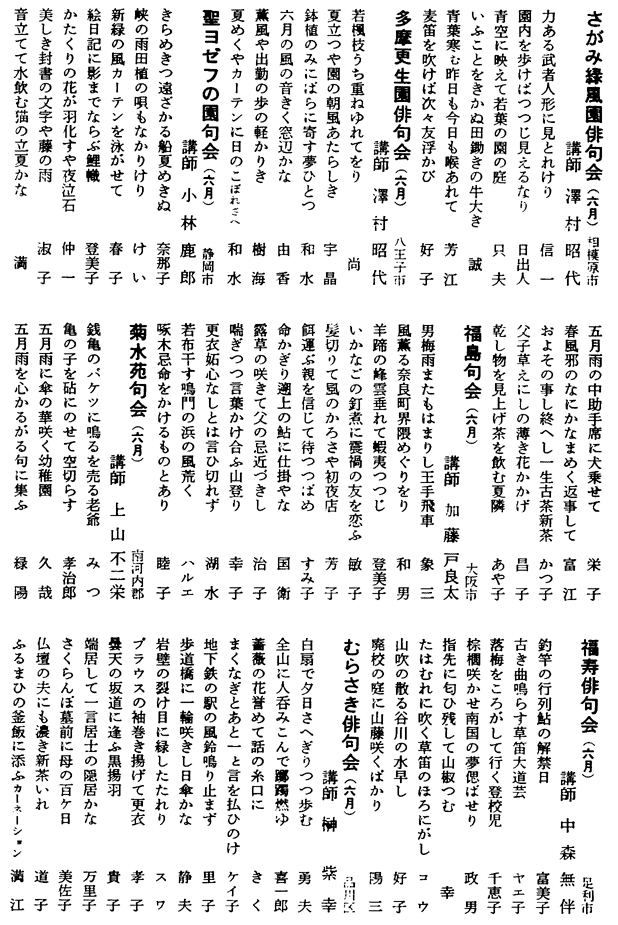 さがみ緑風園俳句会（六月）相模原市
講師 澤村 昭代
力ある武者人形に見とれけり 信一
園内を歩けばつつじ見えるなり 日出人
青空に映えて若葉の園の庭 只夫
いふことをきかぬ田鋤きの牛大き 誠
青葉寒む昨日も今日も喉あれて 芳江
麦笛を吹けば次々友浮かび 好子
多摩更生園俳句会（六月）八王子市
講師 澤村 昭代
若楓枝うち重ねゆれてをり 尚
夏立つや園の朝風あたらしき 宇晶
鉢植のみにばらに寄す夢ひとつ 和水
六月の風の音きく窓辺かな 由香
薫風や出勤の歩の軽かりき 樹海
夏めくやカーテンに日のこぼれゐて 和水
聖ヨゼフの園句会（六月）静岡市
講師 小林 鹿郎
きらめきつ遠ざかる船夏めきぬ 奈那子
峡の雨田植の唄もなかりけり けい
新緑の風カーテンを泳がせて 春子
絵日記に影までならぶ鯉幟 登美子
かたくりの花が羽化すや夜泣石 仲一
美しき封書の文字や藤の雨 淑子
音立てて水飲む猫の立夏かな 満
五月雨の中助手席に犬乗せて 栄子
春風邪のなにかなまめく返事して 富江
およその事し終へし一生古茶新茶 かつ子
父子草えにしの薄き花かかげ 昌子
乾し物を見上げ茶を飲む夏隣 あや子
福島句会（六月）大阪市
講師 加藤 戸良太
男梅雨またもはまりし王手飛車 象三
風薫る奈良町界隈めぐりをり 和男
羊蹄の峰雲垂れて蝦夷つつじ 登美子
いかなごの釘煮に震禍の友を恋ふ 敏子
髪切りて風のかろさや初夜店 芳子
餌運ぶ親を信じて待つつばめ すみ子
命かぎり遡上の鮎に仕掛やな 国衛
露草の咲きて父の忌近づきし 治子
喘ぎつつ言葉かけ合ふ山登り 幸子
更衣妬心なしとは言ひ切れず 湖水
若布干す鳴門の浜の風荒く ハルエ
啄木忌命をかけるものとあり 睦子
菊水苑句会（六月）南河内郡
講師 上山 不二栄
銭亀のバケツに鳴るを売る老爺 みつ
亀の子を砧にのせて空切らす 孝治郎
五月雨に傘の華咲く幼稚園 久哉
五月雨を心かるがる句に集ふ 緑陽
福寿俳句会（六月）足利市
講師 中森 無伴
釣竿の行列鮎の解禁日 富美子
古き曲鳴らす草笛大道芸 ヤエ子
落梅をころがして行く登校児 千恵子
棕櫚咲かせ南国の夢偲ばせり 政男
指先に匂ひ残して山椒つむ 幸
たはむれに吹く草笛のほろにがし コウ
山吹の散る谷川の水早し 好子
廃校の庭に山藤咲くばかり 陽三
むらさき俳句会（六月）品川区
講師 榊 柴幸
白扇で夕日さへぎりつつ歩む 勇夫
全山に人呑みこんで躑躅燃ゆ 喜一郎
薔薇の花誉めて話の糸口に きく
まくなぎとあと一と言を払ひのけ ケイ子
地下鉄の駅の風鈴鳴り止まず 里子
歩道橋に一輪咲きし日傘かな 静夫
岩壁の裂け目に緑したたれり スワ
ブラウスの袖巻き揚げて更衣 孝子
曇天の坂道に逢ふ黒揚羽 貴子
端居して一言居士の隠居かな 万里子
さくらんぼ墓前に母の百ケ日 美佐子
仏壇の夫にも濃き新茶いれ 道子
ふるまひの釜飯に添ふカーネーション 満江